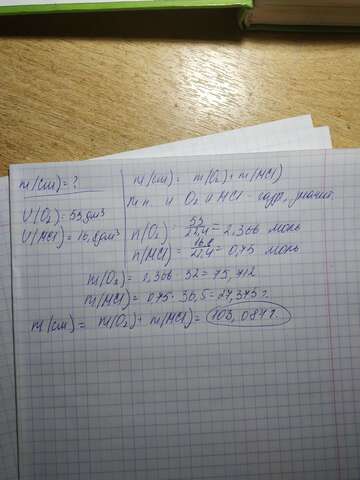 m(см) = ?
V(O₂) = 53 дм³
V(HCl) = 16,8 дм³
m(см) = m(O₂) + m(HCl)
т.к. и O₂ и HCl -
n(O₂) = 53/22,4 = 2,366 моль
n(HCl) = 16,8/22,4 = 0,75 моль
m(O₂) = 2,366 · 32 = 75,712
m(HCl) = 0,75 · 36,5 = 27,375 г.
m(см) = m(O₂) + m(HCl) = 103,087 г.